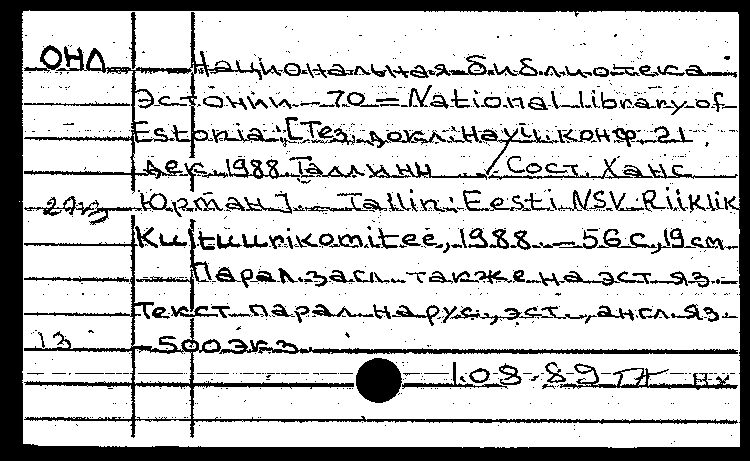 ОНЛ Национальная библиотека
Эстонии - 70 = National Library of
Estonia: [Тез. докл. науч. конф. 21
дек. 1988. Таллинн / Сост. Ханс
Юрман]. - Tallin: Eesti NSV Riiklik
Kultuurikomitee, 1988. - 56 с., 19 см.
Парал. загл. также на эст. яз.
Текст парал. на рус., эст., англ. яз.
13 - 500 экз.
1.08.89